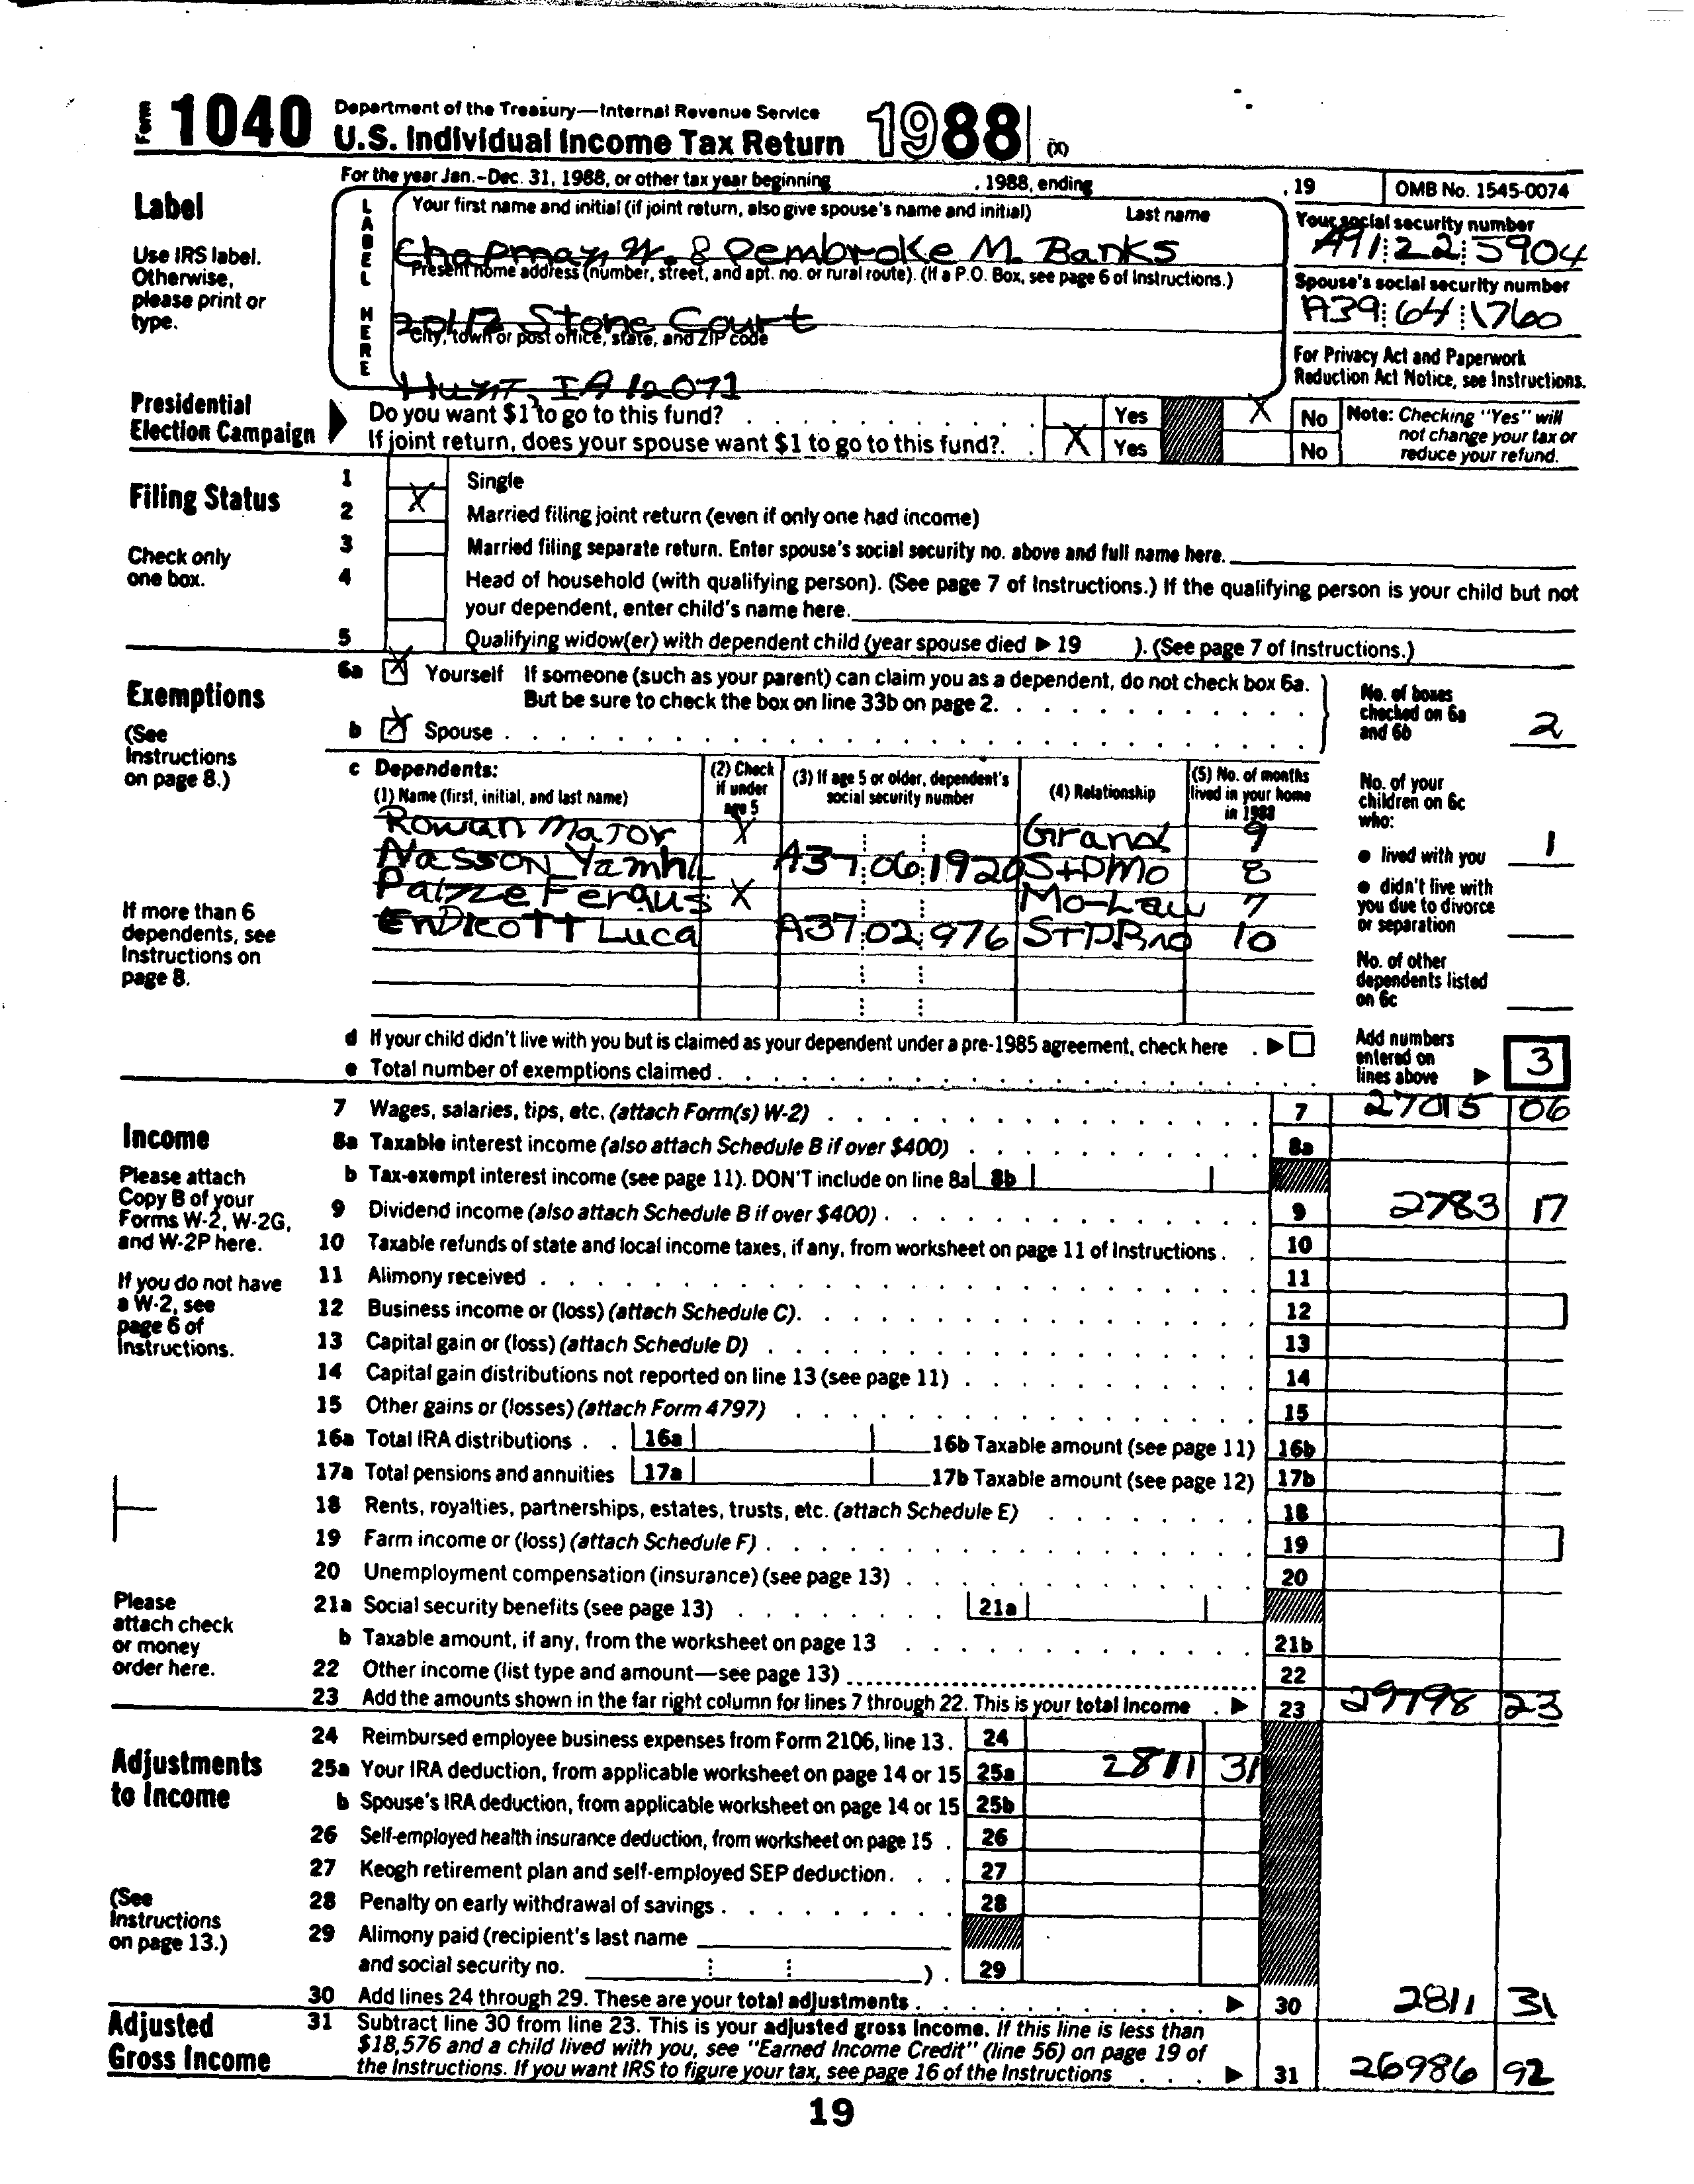 Form 1040 Department of the Treasury—Internal Revenue Service
U.S. Individual Income Tax Return 1988 (X)
For the year Jan.-Dec. 31, 1988, or other tax year beginning , 1988, ending , 19 OMB No. 1545-0074
Label
Use IRS label. Otherwise, please print or type.
LABEL HERE
Your first name and initial (if joint return, also give spouse's name and initial) Last name
Chapman W. & Pembroke M. Banks
Your social security number
A91 22 5904
Present home address (number, street, and apt. no. or rural route). (If a P.O. Box, see page 6 of Instructions.)
Stone Court
Spouse's social security number
A39 64 1760
City, town or post office, state, and ZIP code
IA 12071
For Privacy Act and Paperwork Reduction Act Notice, see Instructions.
Presidential Election Campaign
Do you want $1 to go to this fund? Yes X No
If joint return, does your spouse want $1 to go to this fund? X Yes No
Note: Checking "Yes" will not change your tax or reduce your refund.
Filing Status
Check only one box.
1 Single
2 X Married filing joint return (even if only one had income)
3 Married filing separate return. Enter spouse's social security no. above and full name here.
4 Head of household (with qualifying person). (See page 7 of Instructions.) If the qualifying person is your child but not
your dependent, enter child's name here.
5 Qualifying widow(er) with dependent child (year spouse died ▶ 19 ). (See page 7 of Instructions.)
Exemptions
(See Instructions on page 8.)
6a X Yourself If someone (such as your parent) can claim you as a dependent, do not check box 6a.
But be sure to check the box on line 33b on page 2.
b X Spouse
No. of boxes checked on 6a and 6b 2
c Dependents:
(1) Name (first, initial, and last name) (2) Check if under age 5 (3) If age 5 or older, dependent's social security number (4) Relationship (5) No. of months lived in your home in 1988
Rowan Major X Grand 9
Nasson Yamhil A37 06 1920 StPMo 8
Paizze Fergus X Mo-Law 7
Endicott Luca A37 02 976 STPBro 10
If more than 6 dependents, see Instructions on page 8.
No. of your children on 6c who:
● lived with you 1
● didn't live with you due to divorce or separation
No. of other dependents listed on 6c
d If your child didn't live with you but is claimed as your dependent under a pre-1985 agreement, check here ▶
e Total number of exemptions claimed
Add numbers entered on lines above ▶ 3
Income
Please attach Copy B of your Forms W-2, W-2G, and W-2P here.
If you do not have a W-2, see page 6 of Instructions.
Please attach check or money order here.
7 Wages, salaries, tips, etc. (attach Form(s) W-2) 7 27015 06
8a Taxable interest income (also attach Schedule B if over $400) 8a
b Tax-exempt interest income (see page 11). DON'T include on line 8a 8b
9 Dividend income (also attach Schedule B if over $400) 9 2783 17
10 Taxable refunds of state and local income taxes, if any, from worksheet on page 11 of Instructions. 10
11 Alimony received 11
12 Business income or (loss) (attach Schedule C). 12
13 Capital gain or (loss) (attach Schedule D) 13
14 Capital gain distributions not reported on line 13 (see page 11) 14
15 Other gains or (losses) (attach Form 4797) 15
16a Total IRA distributions 16a 16b Taxable amount (see page 11) 16b
17a Total pensions and annuities 17a 17b Taxable amount (see page 12) 17b
18 Rents, royalties, partnerships, estates, trusts, etc. (attach Schedule E) 18
19 Farm income or (loss) (attach Schedule F) 19
20 Unemployment compensation (insurance) (see page 13) 20
21a Social security benefits (see page 13) 21a
b Taxable amount, if any, from the worksheet on page 13 21b
22 Other income (list type and amount—see page 13) 22
23 Add the amounts shown in the far right column for lines 7 through 22. This is your total income ▶ 23 29798 23
Adjustments to Income
(See Instructions on page 13.)
24 Reimbursed employee business expenses from Form 2106, line 13. 24
25a Your IRA deduction, from applicable worksheet on page 14 or 15 25a 2811 31
b Spouse's IRA deduction, from applicable worksheet on page 14 or 15 25b
26 Self-employed health insurance deduction, from worksheet on page 15 26
27 Keogh retirement plan and self-employed SEP deduction 27
28 Penalty on early withdrawal of savings 28
29 Alimony paid (recipient's last name
and social security no. ) 29
30 Add lines 24 through 29. These are your total adjustments ▶ 30 2811 31
Adjusted Gross Income
31 Subtract line 30 from line 23. This is your adjusted gross income. If this line is less than
$18,576 and a child lived with you, see "Earned Income Credit" (line 56) on page 19 of
the Instructions. If you want IRS to figure your tax, see page 16 of the Instructions ▶ 31 26986 92
19